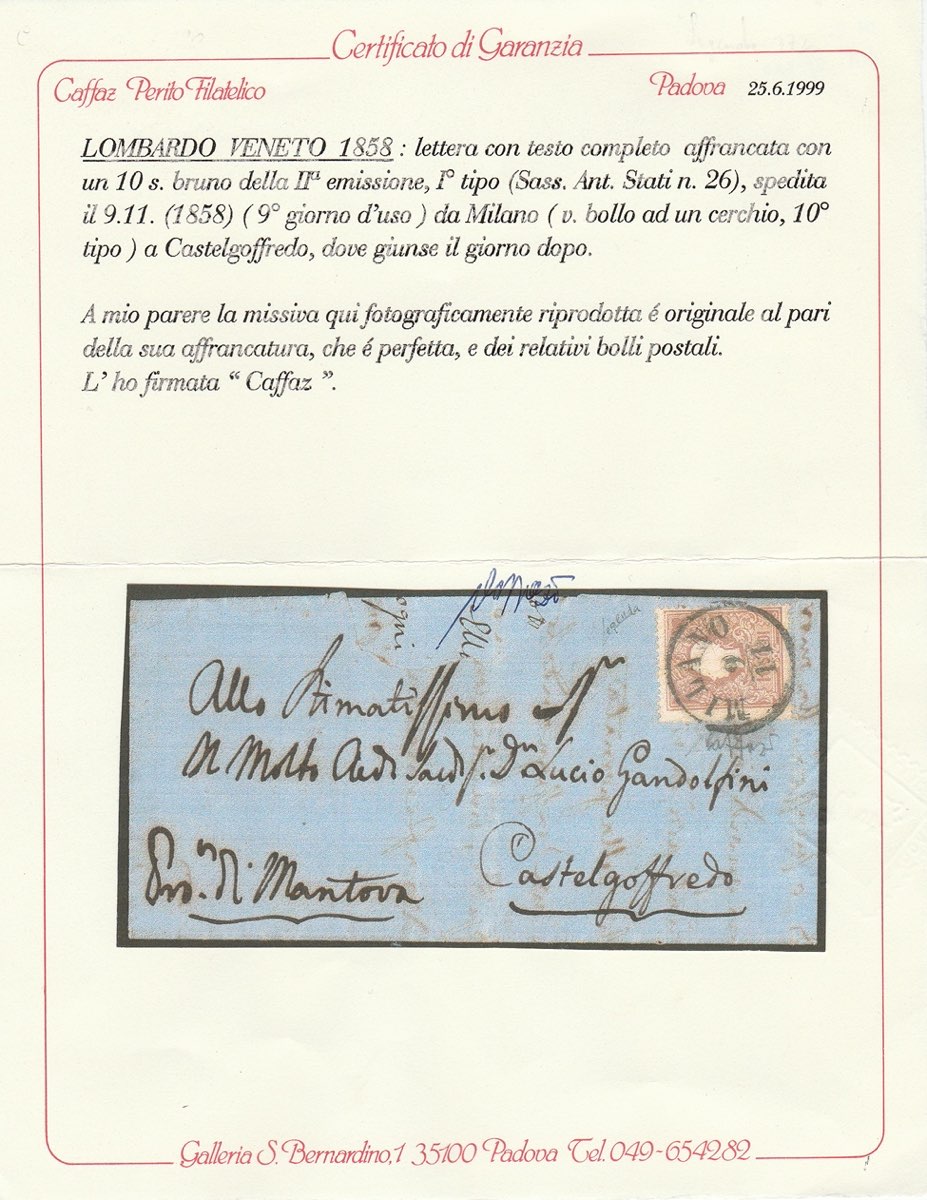 Certificato di Garanzia
Caffaz Perito Filatelico
Padova 25.6.1999
LOMBARDO VENETO 1858 : lettera con testo completo affrancata con
un 10 s. bruno della IIª emissione, I° tipo (Sass. Ant. Stati n. 26), spedita
il 9.11. (1858) ( 9° giorno d'uso ) da Milano ( v. bollo ad un cerchio, 10°
tipo ) a Castelgoffredo, dove giunse il giorno dopo.
A mio parere la missiva qui fotograficamente riprodotta é originale al pari
della sua affrancatura, che é perfetta, e dei relativi bolli postali.
L' ho firmata “ Caffaz ”.
ogni
MILANO
9
11
Caffaz
Allo Stimatissimo Sr
Il Molto Rdo Sacd. Dn Lucio Gandolfini
Castelgoffredo
Provn. di Mantova
Galleria S. Bernardino,1 35100 Padova Tel. 049-654282